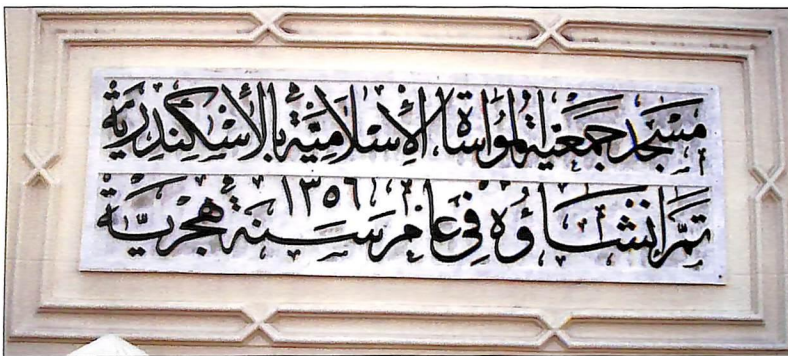 مسجد جمعية المواساة الإسلامية بالأسكندرية
تم إنشاؤه في عام ١٣٥٦ سنة هجرية